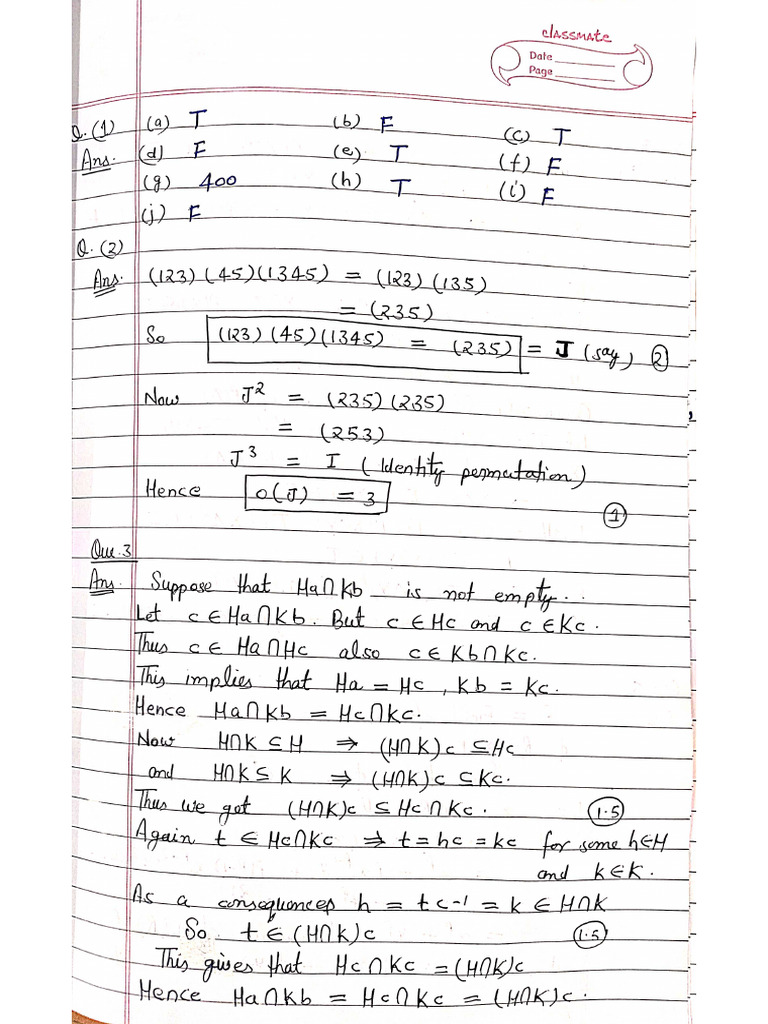 classmate
Date
Page
Q.(1) (a) T (b) F (c) T
Ans. (d) F (e) T (f) F
(g) 400 (h) T (i) F
(j) F
Q.(2)
Ans. (123)(45)(1345) = (123)(135)
= (235)
So (123)(45)(1345) = (235) = J (say) ②
Now J² = (235)(235)
= (253)
J³ = I (Identity permutation)
Hence O(J) = 3
①
Que.3
Ans. Suppose that Ha∩Kb is not empty..
Let c∈Ha∩Kb. But c∈Hc and c∈Kc.
Thus c∈ Ha∩Hc also c∈Kb∩Kc.
This implies that Ha = Hc, Kb = Kc.
Hence Ha∩Kb = Hc∩Kc.
Now H∩K ⊆ H ⇒ (H∩K)c ⊆ Hc
and H∩K ⊆ K ⇒ (H∩K)c ⊆ Kc.
Thus we got (H∩K)c ⊆ Hc∩Kc. (1.5)
Again t ∈ Hc∩Kc ⇒ t = hc = kc for some h∈H
and k∈K.
As a consequences h = tc-1 = k ∈ H∩K
So t ∈ (H∩K)c (1.5)
This gives that Hc∩Kc = (H∩K)c
Hence Ha∩Kb = Hc∩Kc = (H∩K)c.